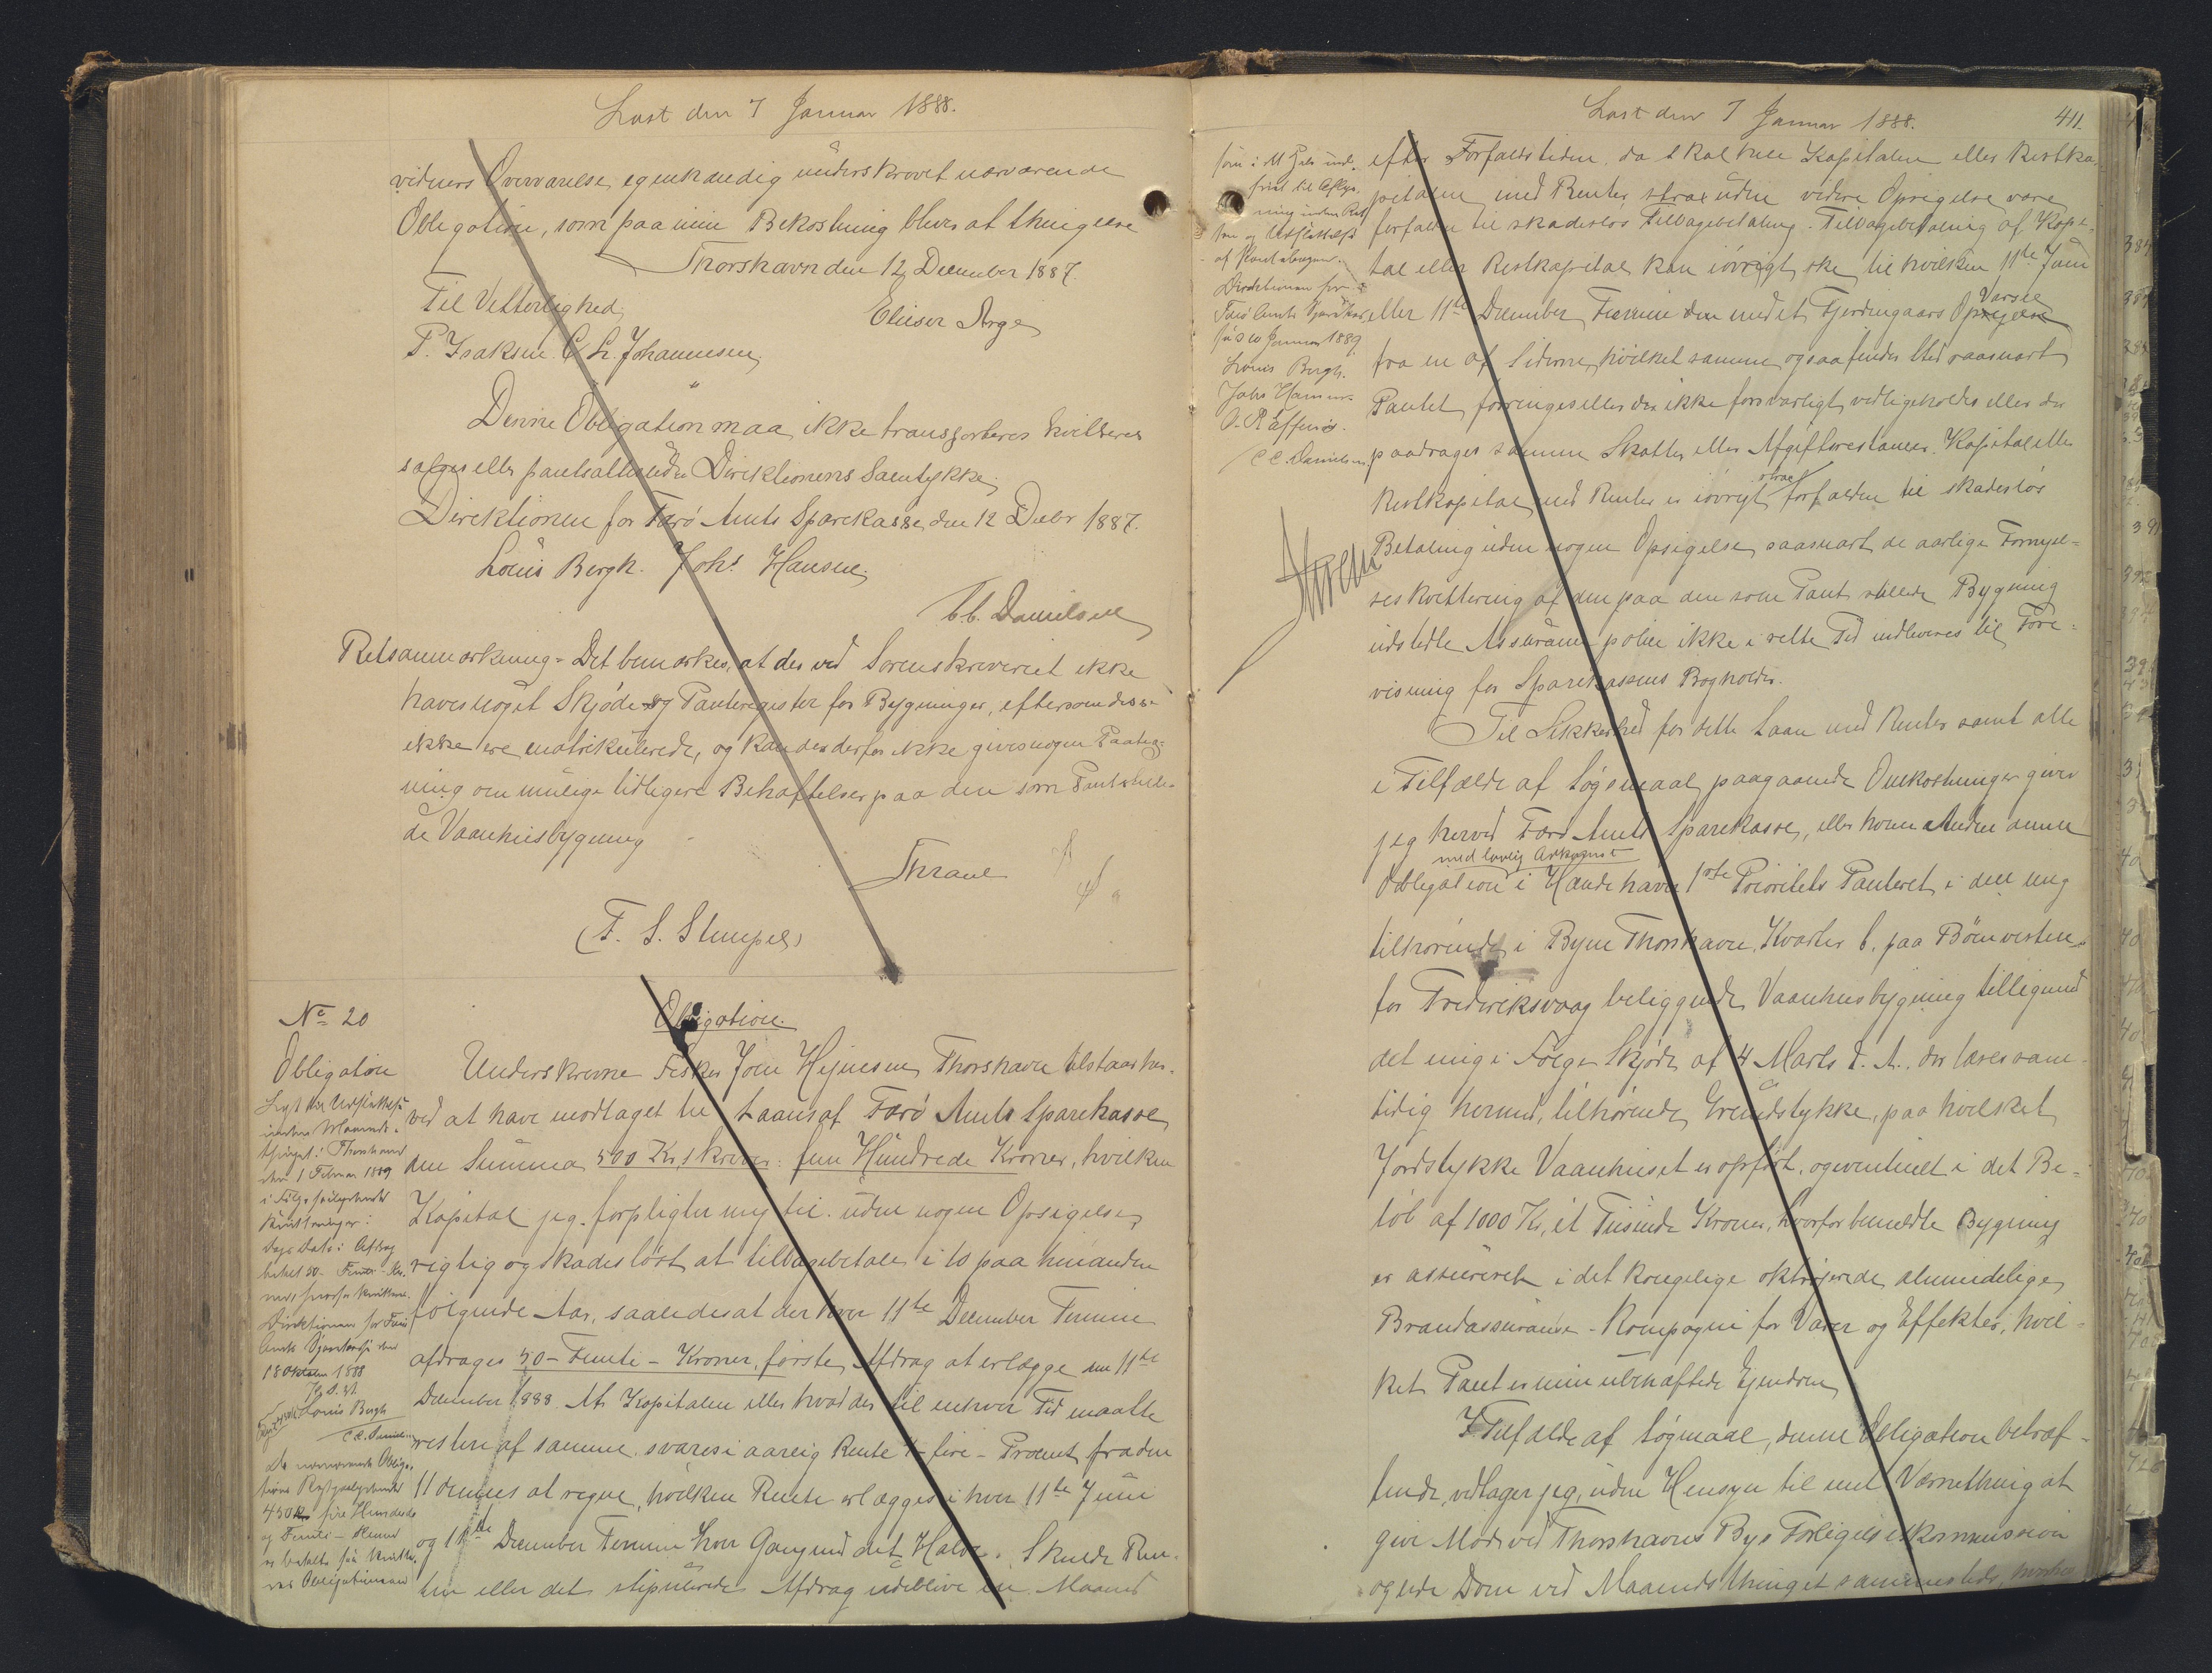 Læst den 7 Januar 1888.
vidners Overværelse egenhændig underskrevet nærværende
Obligation, som paa min Bekostning bliver at thinglæse
Thorshavn den 12 December 1887.
Til Vitterlighed
Elieser Arge
P. Isaksen. C L. Johannesen
Denne Obligation maa ikke transporteres kvitteres
sælges eller pantsættes uden Direktionens Samtykke
Direktionen for Færø Amts Sparekasse, den 12 Decbr 1887.
Louis Bergh. Johs Hansen
C.C. Danielsen
Retsanmærkning. Det bemærkes, at der ved Sorenskriveriet ikke
haves noget Skjøde og Panteregister for Bygninger, eftersom disse
ikke ere matrikulerede, og kan der derfor ikke gives nogen Paateg-
ning om mulige tidligere Behæftelser paa den som Pant stille-
de Vaanhusbygning
Thrane
(T. S. Stempel)
No 20
Obligation
Obligation.
Underskrevne Fisker Joen Hejnesen Thorshavn tilstaar her-
ved at have modtaget til Laans af Færø Amts Sparekasse
den Summa 500 Kr skriver: fem Hundrede Kroner, hvilken
Kapital jeg forpligter mig til uden nogen Opsigelse
rigtig og skadesløst at tilbagebetale i 10 paa hinanden
følgende Aar, saaledes at der hver 11te December Termin
afdrages 50 - Femti - Kroner, første Afdrag at erlægge den 11te
December 1888. Af Kapitalen eller hvad der til enhver Tid maatte
restere af samme svares i aarlig Rente 4 fire - Procent fra den
11 dennes at regne, hvilken Rente erlægges i hver 11te Juni
og 11te December Termin hver Gang med det Halve. Skulde Ren-
ten eller det stipulerede Afdrag udeblive en Maaned
Lyst til Udslettelse
inden Maaneds-
thinget i Thorshavn
den 1 Februar 1889
i Følge
Kvitteringer:
Dags Dato i Afdrag
betalt 50 - Femti - Kr.
Direktionen for Færø
Amts Sparekasse den
18 Oktober 1888
Louis Bergh
C.C. Danielsen
Da nærværende Obliga-
tions Restgjæld
450 Kr fire Hundrede
og Femti - Kroner
er betalt saa kvitte-
res Obligationen
Læst den 7 Januar 1888.
411.
ning uden Ret-
ten og Udslettelse
af Pantebogen.
Direktionen for
Færø Amts Sparekas-
se 10 Januar 1889
Louis Bergh.
Johs Hansen.
O. Effersøe.
C.C. Danielsen
efter Forfaldstiden, da skal hele Kapitalen eller Restka-
pitalen med Renter strax uden videre Opsigelse være
forfalden til skadesløs Tilbagebetaling. Tilbagebetaling af Kapi-
tal eller Restkapital kan iøvrigt ske til hvilken 11te Juni
eller 11te December Termin den med et Fjerdingaars Opsigelse Varsel
fra en af Siderne, hvilket samme ogsaa finder Sted saasnart
Pantet forringes eller der ikke forsvarligt vedligeholdes eller der
paadrages samme Skatter eller Afgiftsrestancer. Kapital eller
Restkapital med Renter er iøvrigt strax forfalden til skadesløs
Betaling uden nogen Opsigelse, saasnart de aarlige Fornyel-
ses Kvittering af den paa den som Pant stillede Bygning
udstedte Assurancepolice ikke i rette Tid indleveres til Fore-
visning for Sparekassens Bogholder.
Thrane
Til Sikkerhed for dette Laan med Renter samt alle
i Tilfælde af Søgsmaal paagaaende Omkostninger giver
jeg herved Færø Amts Sparekasse, eller hvem Anden denne
med lovlig Adkomst
Obligation i Hænde haver 1ste Prioritets Panteret i den mig
tilhørende i Byen Thorshavn, Kvarter C. paa Bøen vesten-
for Frederiksvaag beliggende Vaanhusbygning tilligemed
det mig i Følge Skjøde af 4 Marts d. A., der læses sam-
tidig hermed, tilhørende Grundstykke, paa hvilket
Jordstykke Vaanhuset er opført, og eventuelt i det Be-
løb af 1000 Kr, et Tusinde Kroner, hvorfor bemeldte Bygning
er assureret i det kongelige oktrojerede almindelige
Brandassurance-Kompagni for Varer og Effekter, hvil-
ket Pant er min ubehæftede Ejendom
I Tilfælde af Søgmaal, denne Obligation betræf-
fende, vedtager jeg, uden Hensyn til mit Værnething at
give Møde ved Thorshavns Bys Forligelseskommission
og lide Dom ved Maanedsthinget sammesteds, hvorhen